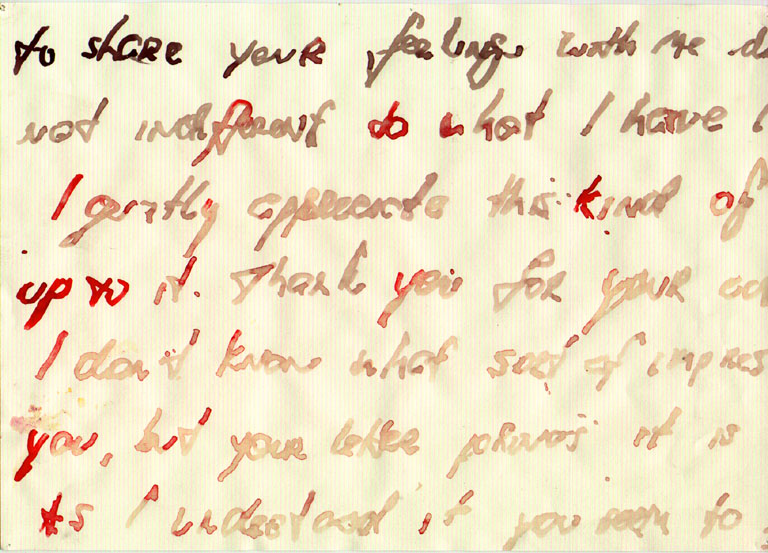 to share your feelings with me
not indifferent to what I have
I greatly appreciate this kind of
up to it. Thank you for your
I don't know what sort of impres
you, but your letter proves it is
As I understand it you seem to